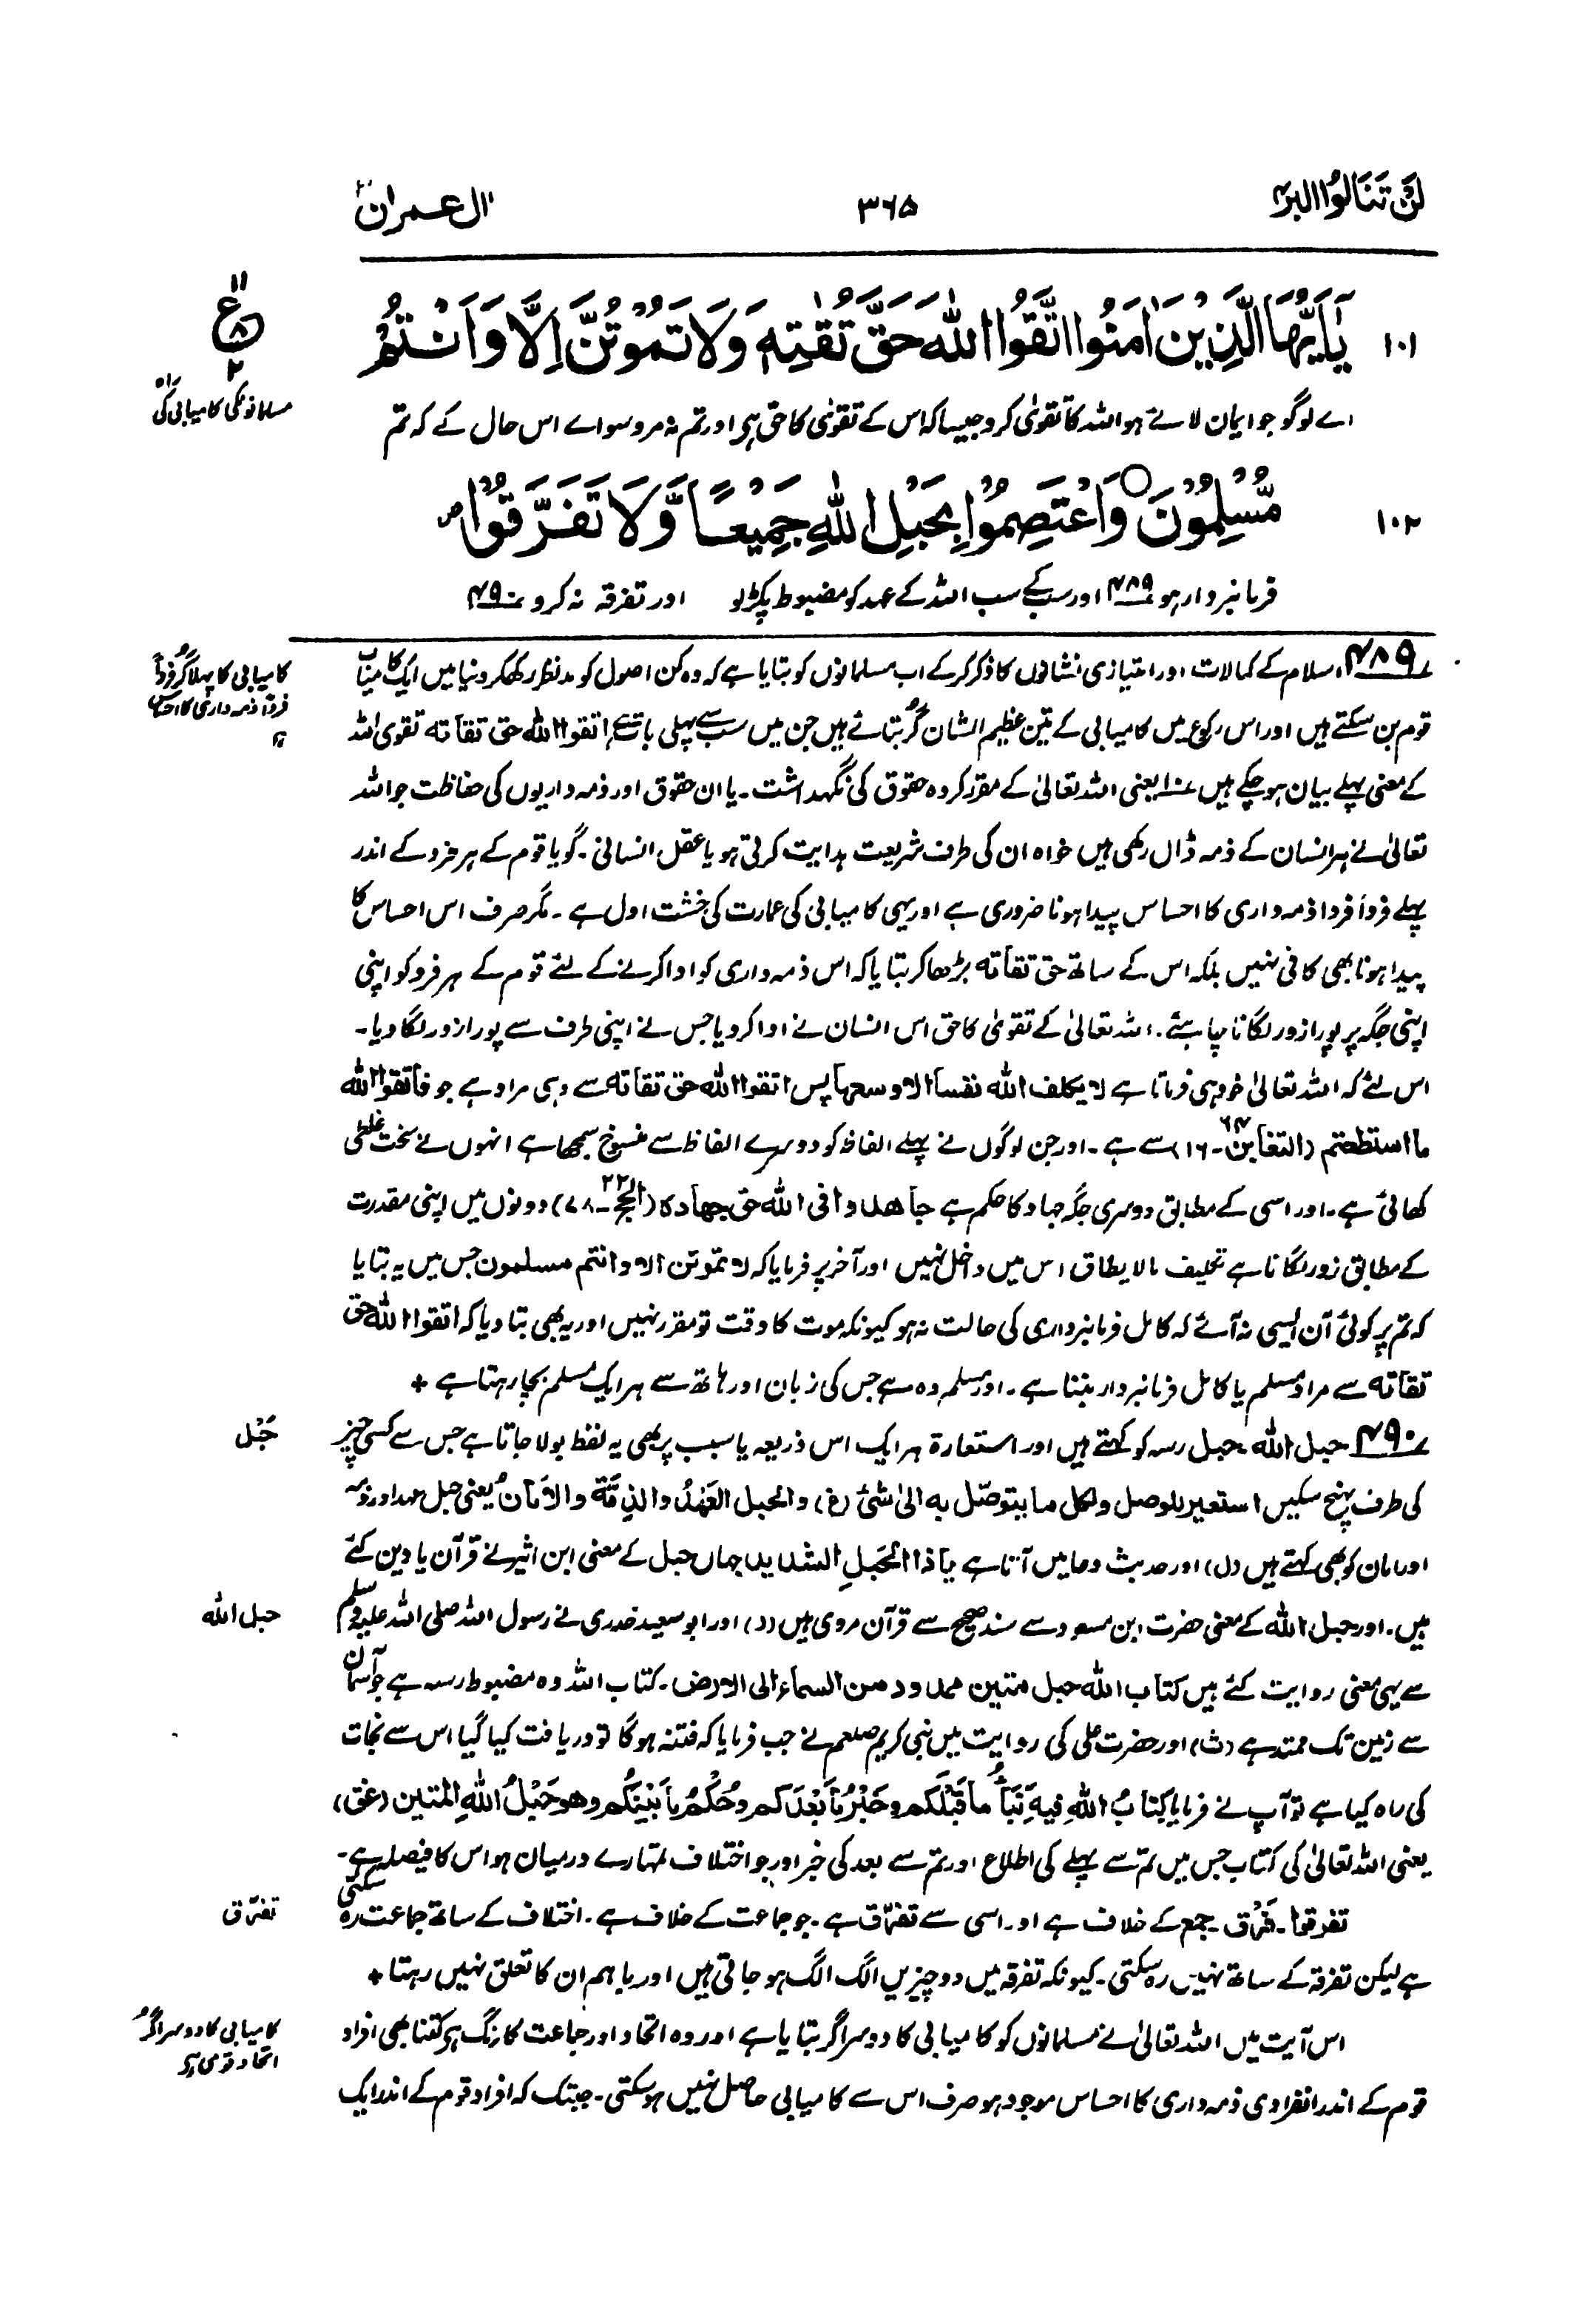 لَنْ تَنَالُوا البر ۴
۳۶۵
اٰل عمران ۳
ع
۱۱
۸
۲
۱۰۱
یٰۤاَیُّهَا الَّذِیْنَ اٰمَنُوا اتَّقُوا اللّٰهَ حَقَّ تُقٰتِهٖ وَلَا تَمُوْتُنَّ اِلَّا وَاَنْتُمْ
مسلمانونکی کامیابی کی راہ
اے لوگو جو ایمان لائے ہو اللہ کا تقویٰ کرو جیسا کہ اس کے تقویٰ کا حق ہی اور تم نہ مرو سواے اس حال کے کہ تم
۱۰۲
مُّسْلِمُوْنَ ○ وَاعْتَصِمُوْا بِحَبْلِ اللّٰهِ جَمِیْعًا وَّلَا تَفَرَّقُوْا ص
فرمانبردار ہو ۴۸۹ اور سب کے سب اللہ کے عہد کو مضبوط پکڑلو اور تفرقہ نہ کرو ۴۹۰
۴۸۹ اسلام کے کمالات اور امتیازی نشانوں کا ذکر کرکے اب مسلمانوں کو بتایا ہے کہ وہ کن اصول کو مدنظر رکھکر دنیا میں ایک کامیاب
کامیابی کا پہلا گُر فرداً
فرداً ذمہ داری کا احساس
ہے
قوم بن سکتے ہیں اور اس رکوع میں کامیابی کے تین عظیم الشان گُر بتائے ہیں جن میں سب سے پہلی بات ہے اتقوا الله حق تقاته تقوی اللہ
کے معنی پہلے بیان ہو چکے ہیں ۱۰ یعنی اللہ تعالیٰ کے مقرر کردہ حقوق کی نگہداشت۔ یا ان حقوق اور ذمہ داریوں کی حفاظت جو اللہ
تعالیٰ نے ہر انسان کے ذمہ ڈال رکھی ہیں خواہ ان کی طرف شریعت ہدایت کرتی ہو یا عقل انسانی۔ گویا قوم کے ہر فرد کے اندر
پہلے فرداً فرداً ذمہ داری کا احساس پیدا ہونا ضروری ہے اور یہی کامیابی کی عمارت کی خشت اول ہے۔ مگر صرف اس احساس کا
پیدا ہونا بھی کافی نہیں بلکہ اس کے ساتھ حق تقاته بڑھا کر بتایا کہ اس ذمہ داری کو ادا کرنے کے لئے قوم کے ہر فرد کو اپنی
اپنی جگہ پر پورا زور لگانا چاہئے۔ اللہ تعالیٰ کے تقویٰ کا حق اس انسان نے ادا کر دیا جس نے اپنی طرف سے پورا زور لگا دیا۔
اس لئے کہ اللہ تعالیٰ خود ہی فرماتا ہے لا يكلف الله نفسا الا وسعها پس اتقوا الله حق تقاته سے وہی مراد ہے جو فاتقوا الله
ما استطعتم (التغابن ۶۴-۱۶) سے ہے۔ اور جن لوگوں نے پہلے الفاظ کو دوسرے الفاظ سے منسوخ سمجھا ہے انہوں نے سخت غلطی
کھائی ہے۔ اور اسی کے مطابق دوسری جگہ جہاد کا حکم ہے جاهدوا فی الله حق جهاده (الحج ۲۲-۷۸) دونوں میں اپنی مقدرت
کے مطابق زور لگانا ہے تکلیف مالا یطاق اس میں داخل نہیں اور آخر پر فرمایا کہ لا تموتن الا وانتم مسلمون جس میں یہ بتایا
کہ تم پر کوئی آن ایسی نہ آئے کہ کامل فرمانبرداری کی حالت نہ ہو کیونکہ موت کا وقت تو مقرر نہیں اور یہ بھی بتا دیا کہ اتقوا الله حق
تقاته سے مراد مسلم یا کامل فرمانبردار بننا ہے۔ اور مسلم وہ ہے جس کی زبان اور ہاتھ سے ہر ایک مسلم بچا رہتا ہے +
۴۹۰ حبل الله۔ حبل رسہ کو کہتے ہیں اور استعارۃ ہر ایک اس ذریعہ یا سبب پر بھی یہ لفظ بولا جاتا ہے جس سے کسی چیز
حَبْل
کی طرف پہنچ سکیں استعير للوصل ولكل ما يتوصّل به الى شئ (غ) والحبل العَهْدُ والذِمَّة والاَمَانُ یعنی حبل عہد اور ذمہ
اور امان کو بھی کہتے ہیں (ل) اور حدیث دعا میں آتا ہے یا ذا الحَبلِ الشدید جہاں حبل کے معنی ابن اثیر نے قرآن یا دین کئے
ہیں۔ اور حبل اللہ کے معنی حضرت ابن مسعود سے سند صحیح سے قرآن مروی ہیں (د) اور ابو سعید خدری نے رسول اللہ صلی اللہ علیہ وسلم
حبل اللہ
سے یہی معنی روایت کئے ہیں کتاب الله حبل متین ممدود من السماء الی الارض۔ کتاب اللہ وہ مضبوط رسہ ہے جو آسمان
سے زمین تک ممتد ہے (ث) اور حضرت علی کی روایت میں نبی کریم صلعم نے جب فرمایا کہ فتنہ ہوگا تو دریافت کیا گیا اس سے نجات
کی راہ کیا ہے تو آپ نے فرمایا کِتابُ اللّٰهِ فِیهِ نَبَأُ ما قَبْلَکم وخَبْرُ ما بَعْدَکم وحُکْمُ ما بَیْنَکُم وهو حَبْلُ اللّٰهِ المتین (غق)
یعنی اللہ تعالیٰ کی کتاب جس میں تم سے پہلے کی اطلاع اور تم سے بعد کی خبر اور جو اختلاف تمہارے درمیان ہو اس کا فیصلہ ہے۔
تفرقوا۔ فَرْق۔ جمع کے خلاف ہے اور اسی سے تفرّق ہے۔ جو جماعت کے خلاف ہے۔ اختلاف کے ساتھ جماعت رہ سکتی
تفرّق
ہے لیکن تفرقہ کے ساتھ نہیں رہ سکتی۔ کیونکہ تفرقہ میں دو چیزیں الگ الگ ہو جاتی ہیں اور باہم ان کا تعلق نہیں رہتا +
اس آیت میں اللہ تعالیٰ نے مسلمانوں کو کامیابی کا دوسرا گُر بتایا ہے اور وہ اتحاد اور جماعت کا رنگ ہی کتنا بھی افراد
کامیابی کا دوسرا گُر
اتحاد قومی ہی
قوم کے اندر انفرادی ذمہ داری کا احساس موجود ہو صرف اس سے کامیابی حاصل نہیں ہو سکتی۔ جبتک کہ افراد قوم کے اندر ایک